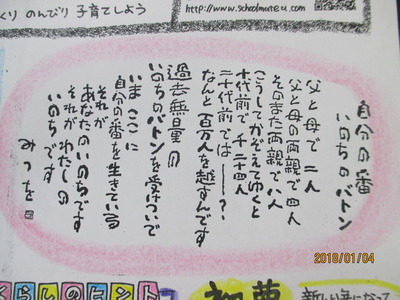 くり のんびり 子育てしよう
http://www.schoolmate
自分の番
いのちのバトン
父と母で 二人
父と母の両親で 四人
そのまた両親で 八人
こうしてかぞえてゆくと
十代前で 千二十四人
二十代前では―?
なんと百万人を越すんです
過去無量の
いのちのバトンを受けついで
いま ここに
自分の番を生きている
それが
あなたのいのちです
それがわたしの
いのちです
みつを
2018/01/04
くらしのヒント
初夢
新しい年になって